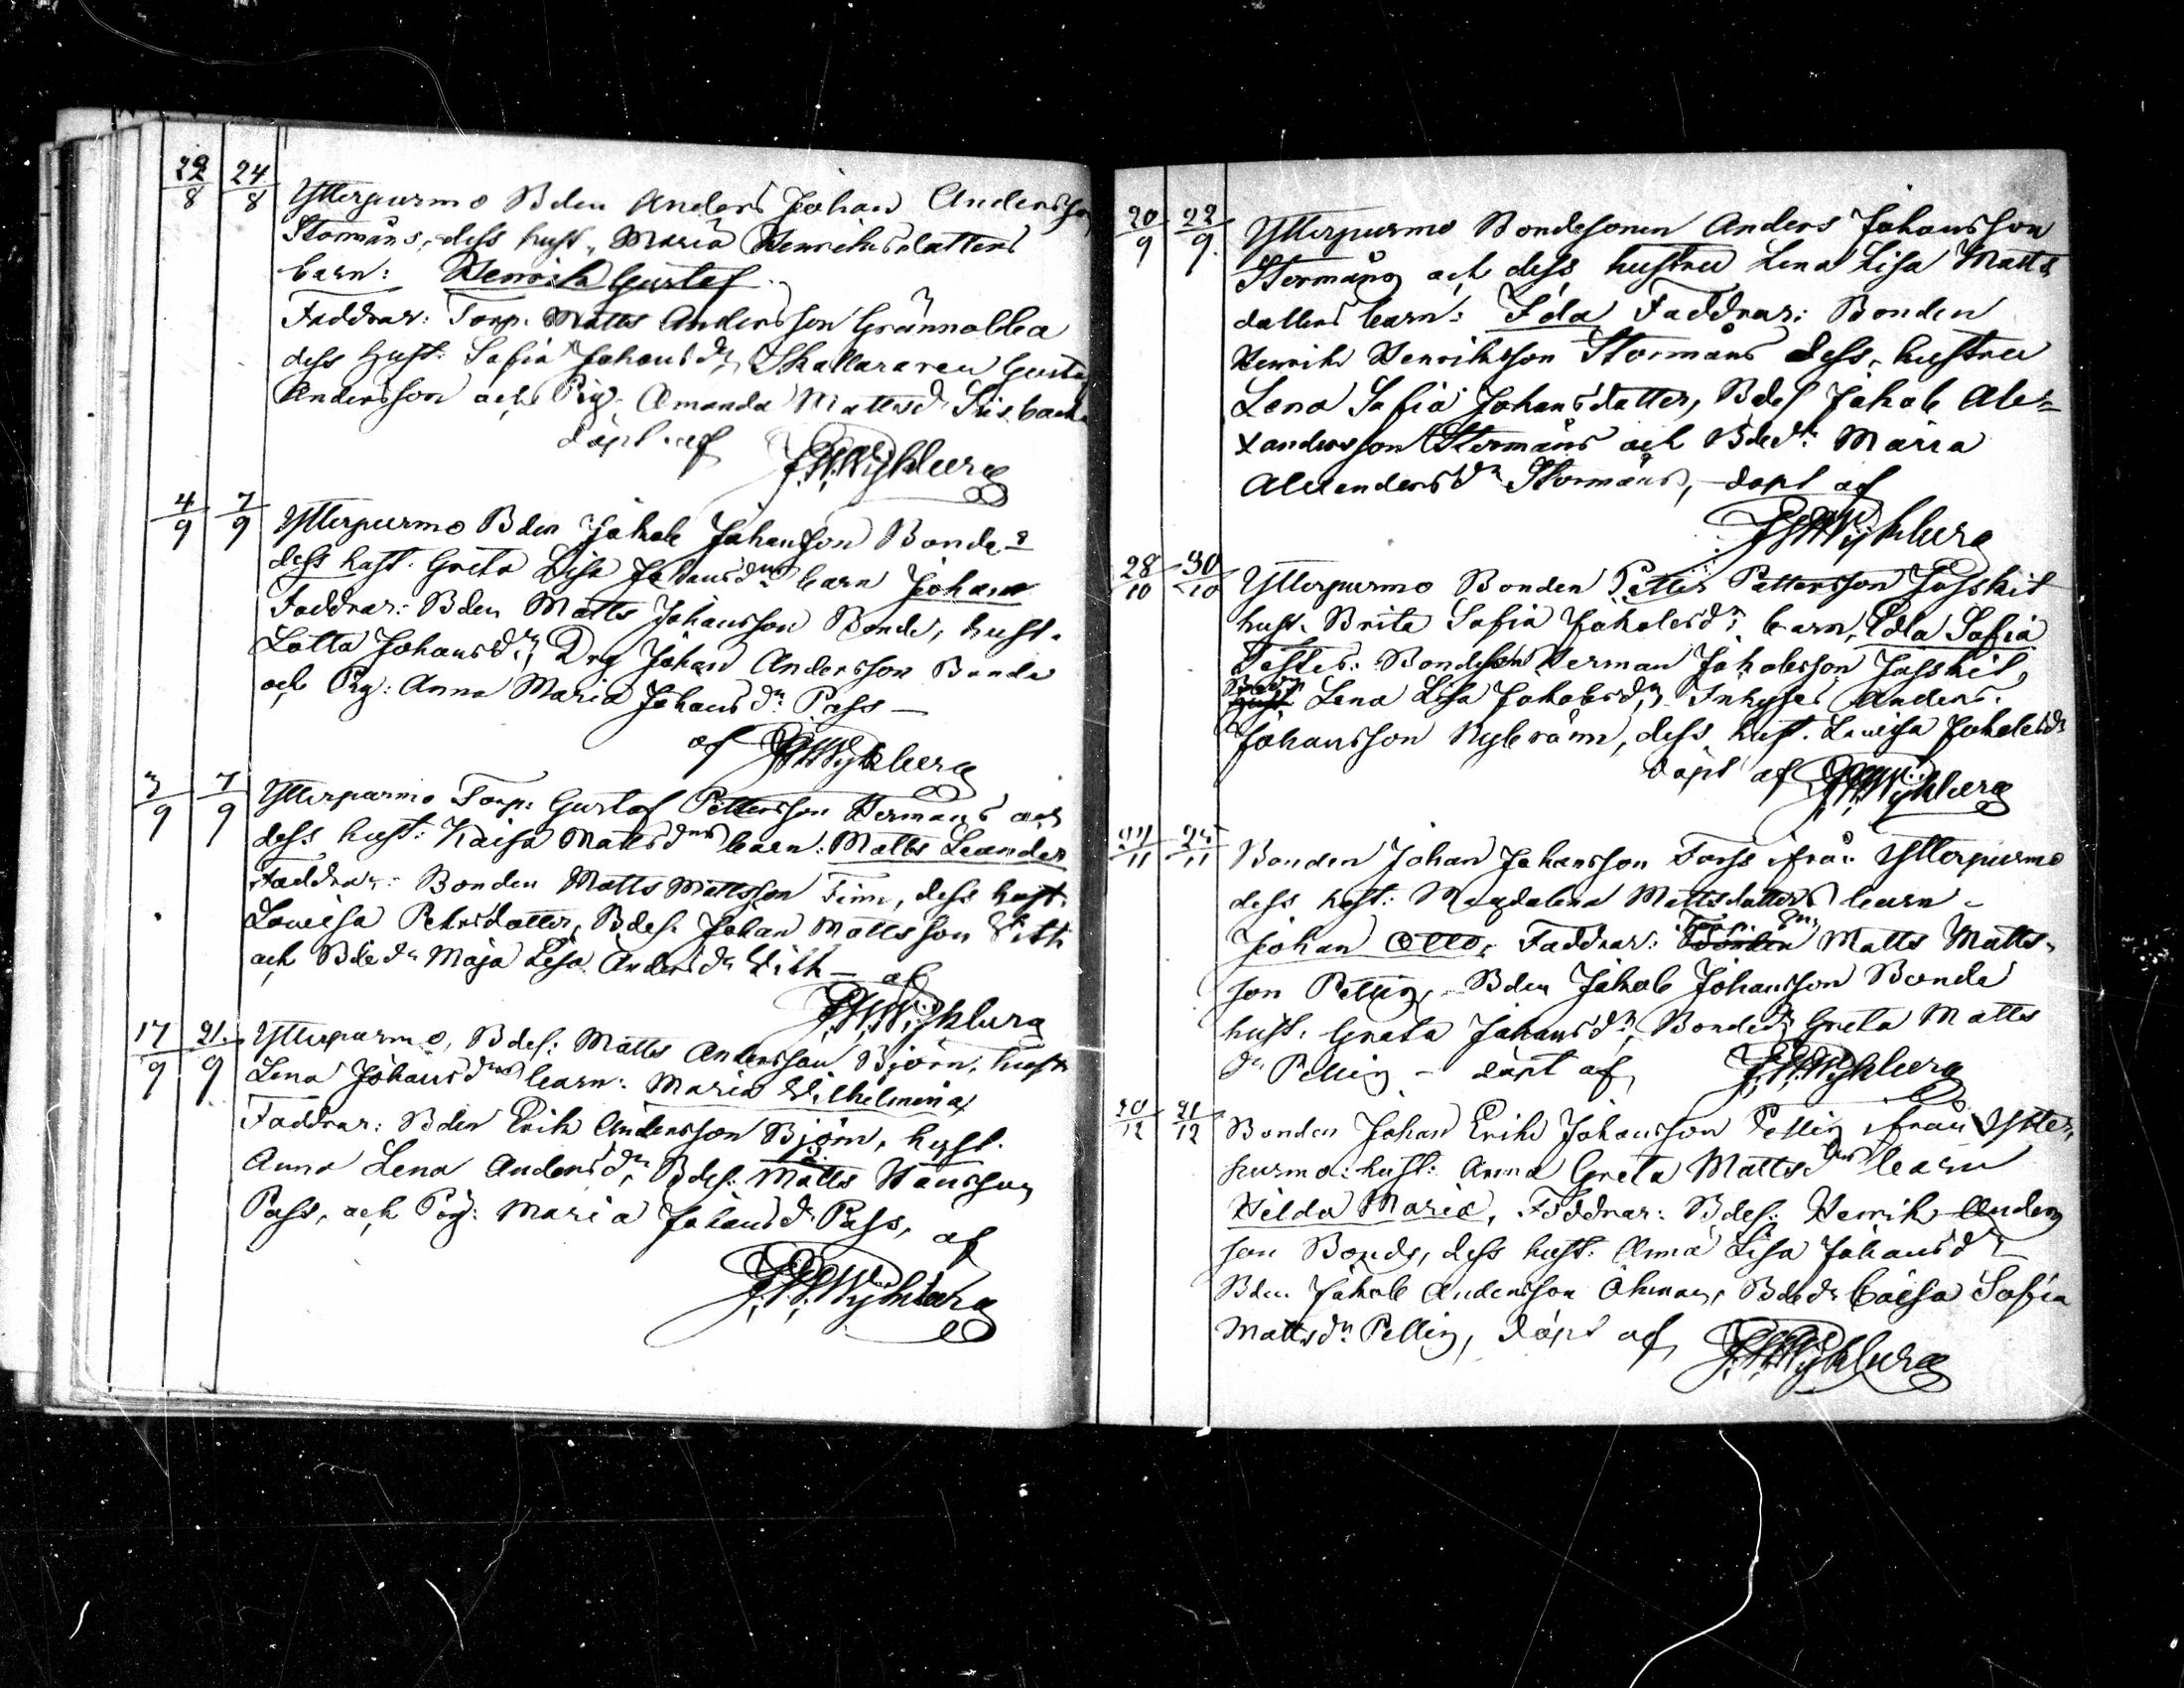 22/8 24/8 Ytterpurmo Bden Anders Johan Andersson
Stormåns, dess hust. Maria Henriksdatters
barn: Henrik Gustaf
Faddrar: Torp. Matts Andersson Grannabba
dess Hust: Sofia Johansdr, Skallararen Gustaf
Andersson och Pig. Amanda Mattsdr
döpt af J.W.Nybberg
4/9 7/9 Ytterpurmo Bden Jakob Johansson Bonde
dess hust. Greta Lisa Johansdrs barn Johan
Faddrar: Bden Matts Johansson Bonde, hust.
Lotta Johansdr, Drg Johan Andersson Bonde
och Pig: Anna Maria Johansdr Pass —
af
3/9 7/9 Ytterpurmo Torp: Gustaf Pettersson Hermans och
dess hust: Kaisa Mattsdrs barn: Matts Leander
Faddrar: Bonden Matts Mattsson Finn, dess hust.
Lovisa Petrsdotter, Bdes. Johan Mattsson Lith
och Bdedr Maja Lisa Andersdr Lith — af
17/9 21/9 Ytterpurmo, Bdes: Matts Andersson Björn, hustr
Lena Johansdrs barn: Maria Wilhelmina
Faddrar: Bden Erik Andersson Björn, hust.
Anna Lena Andersdr, Bdes: Matts Hansson
Pass, och Pig: Maria Johansdr Pass, af
20/9 22/9 Ytterpurmo Bondesonen Anders Johansson
Stormåns och dess hustru Lena Lisa Matts
datters barn: Ida Faddrar: Bonden
Henrik Henriksson Stormåns dess hustru
Lena Sofia Johansdatter, Bdes Jakob Ale=
xandersson Stormåns och Bdedr: Maria
Alexandersdr Stormåns, döpt af
28/10 30/10 Ytterpurmo Bonden Petter Pettersson Jusskit
hust. Brita Sofia Jakobsdrs barn, Edla Sofia
Testes: Bondeson Herman Jakobsson Jusskit,
Lena Lisa Jakobsdr, Inhyses Anders
Johansson Nybränn, dess hust. Lovisa Jakobsdr
döpt af
/11 /11 Bonden Johan Johansson Forss ifrån Ytterpurmo
dess hust: Magdalena Mattsdatters barn —
Johan Otto, Faddrar: Bonden Matts Matts-
son Pelling, Bden Jakob Johansson Bonde
hust. Greta Johansdr, Bondedr Greta Matts
dr Pelling — döpt af
20/12 21/12 Bonden Johan Erik Johansson Pelling ifrån Ytter,
purmo: hust: Anna Greta Mattsdrs barn
Hilda Maria, Faddrar: Bdes: Henrik Anders
son Bonde, dess hust: Anna Lisa Johansdr
Bden Jakob Andersson Öhman, Bdedr Caisa Sofia
Mattsdr Pelling, döpt af